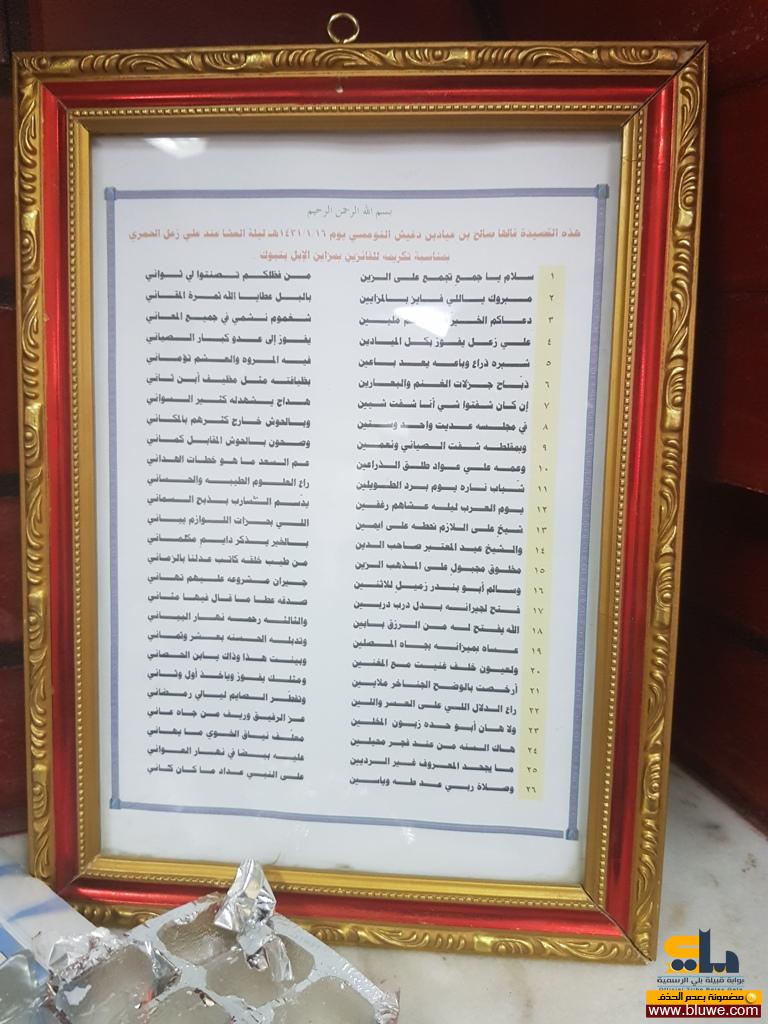 بسم الله الرحمن الرحيم
هذه القصيدة قالها صالح بن عيادبن دغيش النومسي يوم ١٤٣١/١/١٦هـ ليلة العشا عند علي زعل الحمري
بمناسبة تكريمه للفائزين بمزاين الإبل بتبوك
١ سـلام يـا جمـع تجمع علـى الـزين مـن فظلكـم تـصنتوا لي ثـواني
٢ مبـروك يـاللي فـايز بـالمزايين بالبـل عطايـا الله ثمـرة المقـاني
٣ دعـاكم ملبـين شغموم نـشمي في جميـع المعـاني
٤ علـي زعـل يفـوز بكـل الميـادين يفـوز إلى عـدو كبـار الـصياني
٥ شبره ذراع وباعـه يعـد بـاعين فيـه المـروه والعـشم تؤمـاني
٦ ذبـاح جـزلات الغـنم والبعـارين بظيافتـه مثـل مظيـف أبـن ثـاني
٧ إن كـان شـفتوا شـي أنـا شـفت شـيين هـداج يـشهدله كـثير الـسواني
٨ في مجلـسه عـديت واحـد وسـتين وبـالحوش خـارج كثـرهم بالمكـاني
٩ وبمقلطـه شـفت الـصياني ونعمـين وصـحون بـالحوش المقابـل كمـاني
١٠ وعمـه علـي عـواد طلـق الـذراعين عـم الـسعد مـا هـو خطـات الهـداني
١١ شـباب نـاره يـوم بـرد الطـويلين راع العلـوم الطيبـه والحـساني
١٢ يـوم العـرب ليلـه عـشاهم رغفـين يدسـم الـشارب بـذبح الـسماني
١٣ شيخ علـى الـلازم تحطـه علـى ايمـين اللـي بحـزات اللـوازم يبـاني
١٤ والـشيخ عيـد المعتـبر صـاحب الـدين بـالخير يـذكر دايـم مكلمـاني
١٥ مخلـوق مجبـول علـى المـذهب الـزين مـن طيـب خلقـه كاتـب عـدلنا بالزمـاني
١٦ وسـالم أبـو بنـدر زميـل للاثـنين جيـران مـشروعه علـيهم تهـاني
١٧ فـتح لجيرانـه بـدل درب دربـين صـدقه عطـا مـا قـال فيهـا مثـاني
١٨ الله يفـتح لـه مـن الـرزق بـابين والثالثـه رحمـه نهـار البيـاني
١٩ عـساه بميزانـه بجـاه المـصلين وتـدبله الحـسنه بعـشر وثمـاني
٢٠ ولعيـون خلـف غنيـت مـع المغنـين وبينـت هـذا وذاك يـابن الحـصاني
٢١ أرخصـت بالوضـح الجنـاخر ملايـين ومثلـك يفـوز وياخـذ أول وثـاني
٢٢ راع الـدلال اللـي علـى العـسر واللـين وتفطـر الـصايم ليـالي رمـضاني
٢٣ ولا هـان أبـو حـده زبـون المخلـين عـز الرفيـق وريـف مـن جـاه عـاني
٢٤ هـاك الـسنه مـن عنـد فجـر محيلـين معلـف نيـاق الخـوي مـا يهـاني
٢٥ مـا يجحـد المعـروف غـير الـرديين عليـه بيـضا في نهـار العـواني
٢٦ وصـلاة ربـي عـد طـه وياسـين علـى النبـي عـداد مـا كـان كثـاني
بلي
بوابة قبيلة بلي الرسمية
مضمونة بعدم الحذف
www.bluwe.com